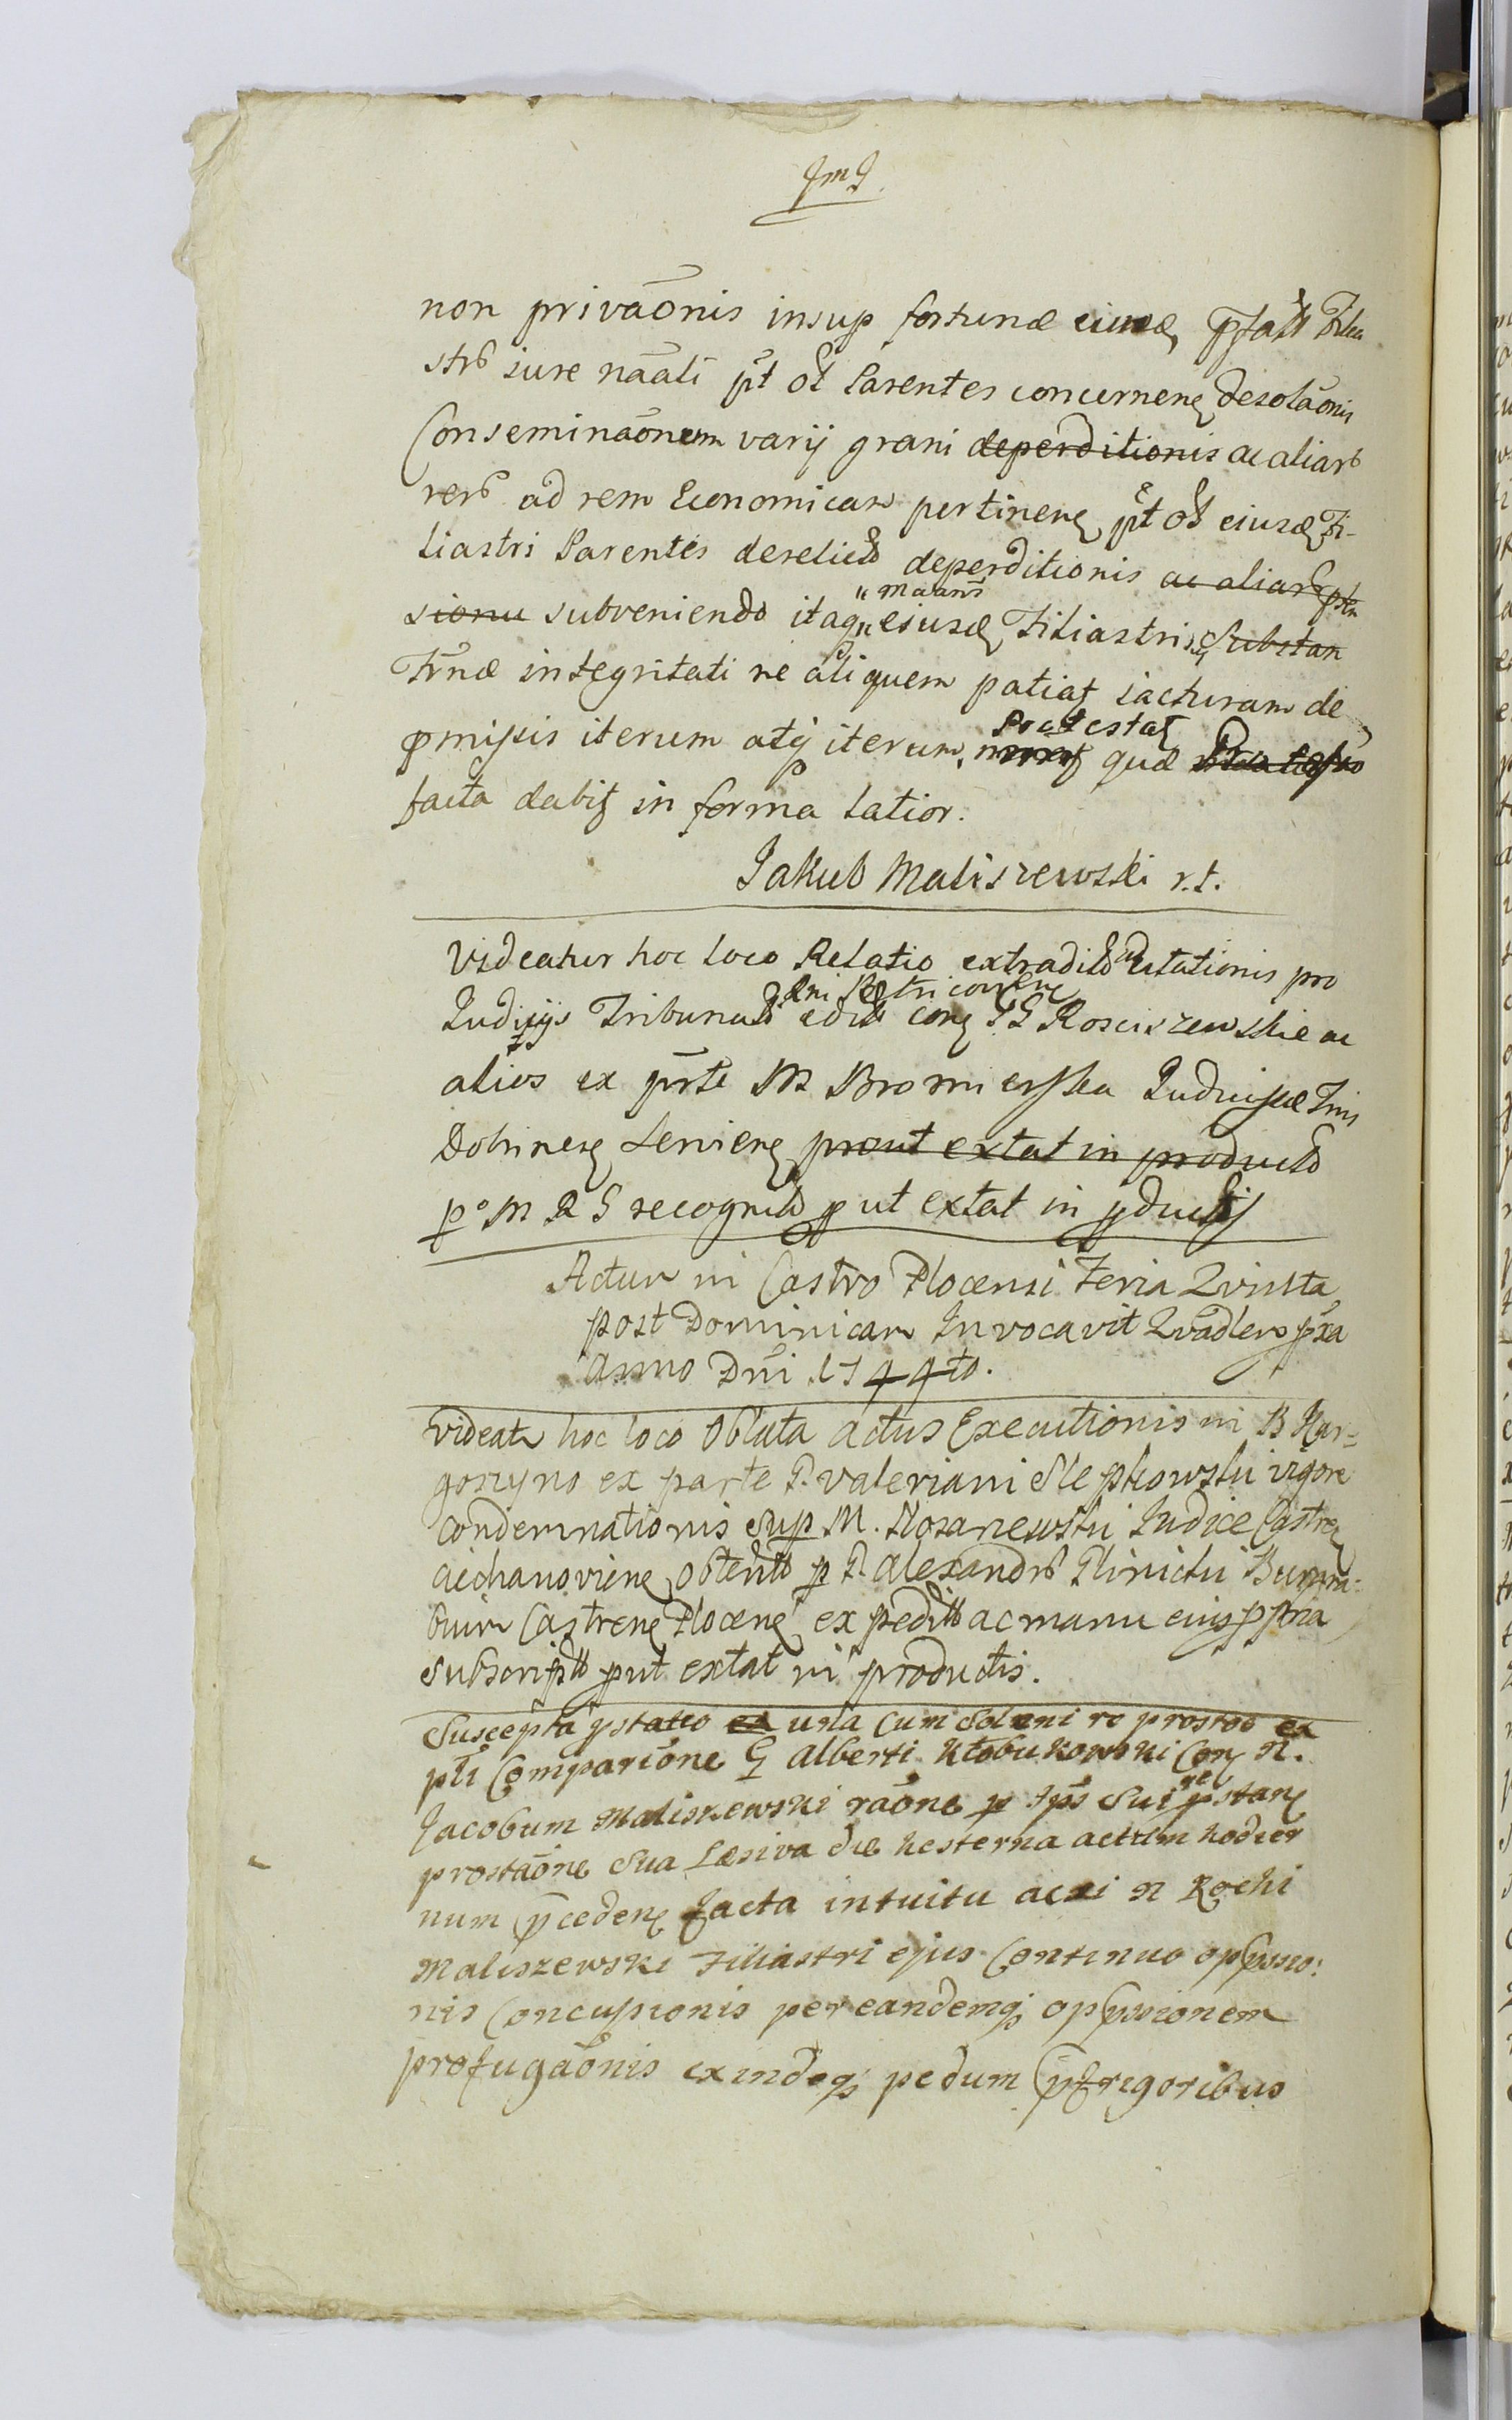 JmJ
non privãonis insup fortunæ eiusd pfati Filia
stro iure nãali pt ob Parentes concernen desolãonis
Conseminãonem varij grani deperditionis ac aliar
rer ad rem Economicam pertinen pt ob eiusd Fi-
liastri Parentes derelict deperditionis ac aliar
sionu subveniendo itaq eiusd Filiastri Substan
Frnæ integritati ne aliquem patiat iacturam de
pmissis iterum atq iterum Protestat quæ
facta dabit in forma latior.
Jakub Maliszewski r.t.
Videatur hoc loco Relatio extradit Citationis pro
Judicijs Tribunal Regni Petricovien
edit con GG Rosciszewskie ac
alios ex prte M Bromierska Judicissæ Tris
Dobrinen prout extat in product
p M R S recognit put extat in pductis
Actum in Castro Plocensi Feria Qvinta
post Dominicam Invocavit Qvadler pxa
Anno Dni 1744to.
videatr hoc loco Oblata actus Executionis in B Kar=
goszyno ex parte P. Valeriani Slepkowski vigore
condemnationis sup M. Mosarzewski Judice Castren
Ciechanovien obtent p P. Alexandr Plinicki Burgra=
bium Castren Plocen expedit ac manu eius ppria
subscript put extat in productis.
Suscepta pstatio ex una cum Solenni re prostõe ex
pti Comparione G Alberti Kłobukowski Con N.
Jacobum Maliszewski rãone p tps sui pstan
prostãone sua Læsiva die hesterna actum hodier
num pceden facta intuitu acsi N Rochi
Maliszewski Filiastri ejus Continuo oppssio:
nis Concussionis per eandemq oppssionem
profugãonis exindeq pedum pfrigoribus